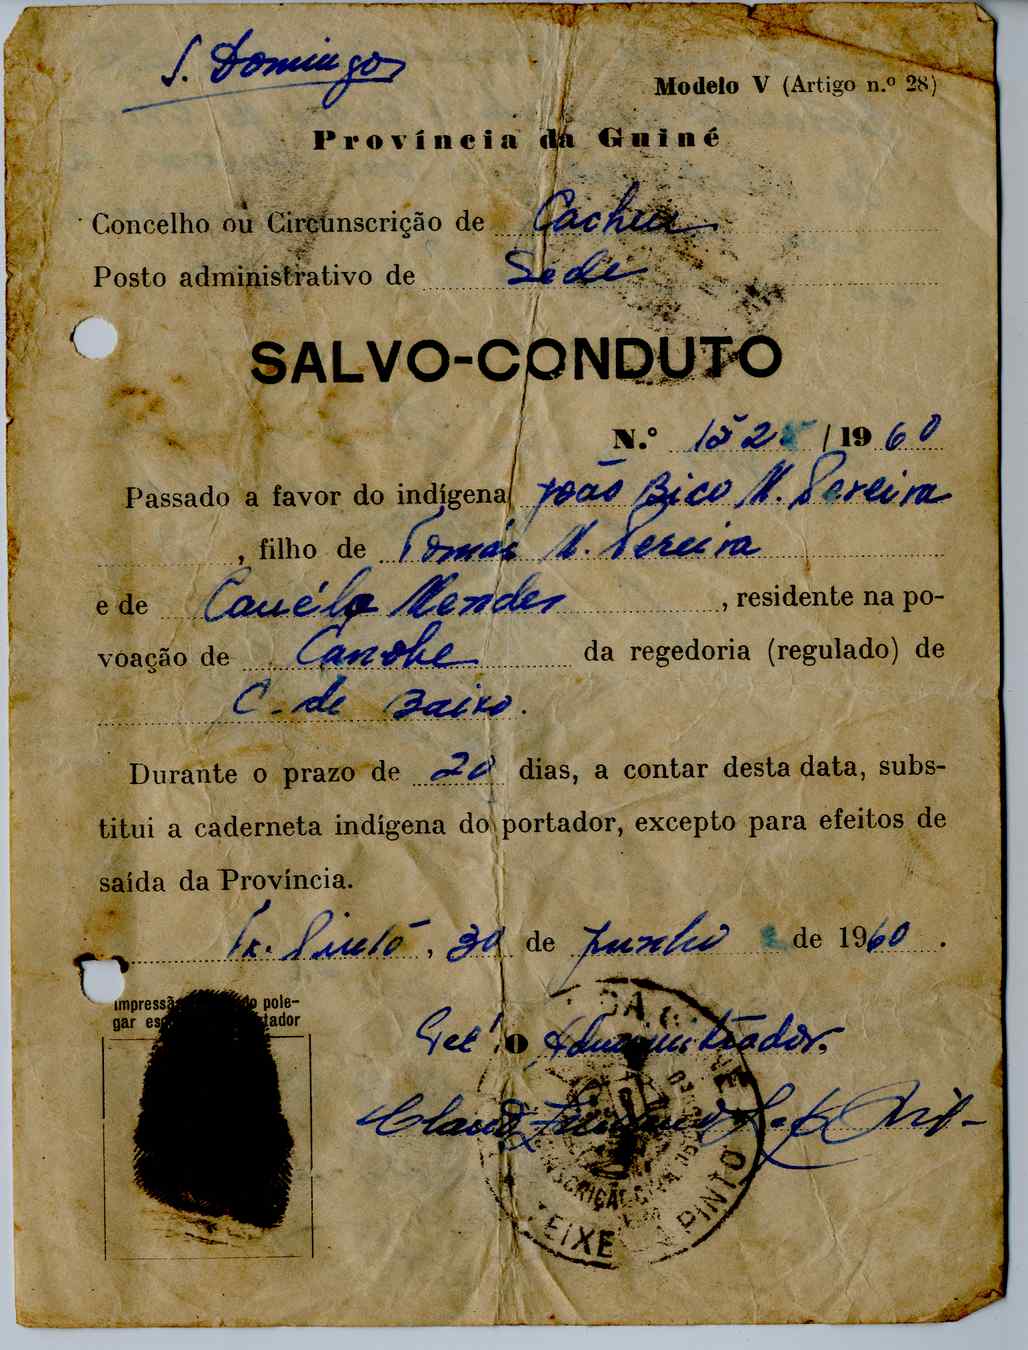 S. Domingos
Modelo V (Artigo n.º 28)
Província da Guiné
Concelho ou Circunscrição de Cacheu
Posto administrativo de Sede
SALVO-CONDUTO
N.º /1960
Passado a favor do indígena João Bico M. Pereira
, filho de Tomás M. Pereira
e de Mendes , residente na po-
voação de Canobe da regedoria (regulado) de
C. de Baixo.
Durante o prazo de 20 dias, a contar desta data, subs-
titui a caderneta indígena do portador, excepto para efeitos de
saída da Província.
Tx. Pinto, 30 de Junho de 1960.
Impressão do pole-
gar portador
O Administrador,
TEIXEIRA PINTO